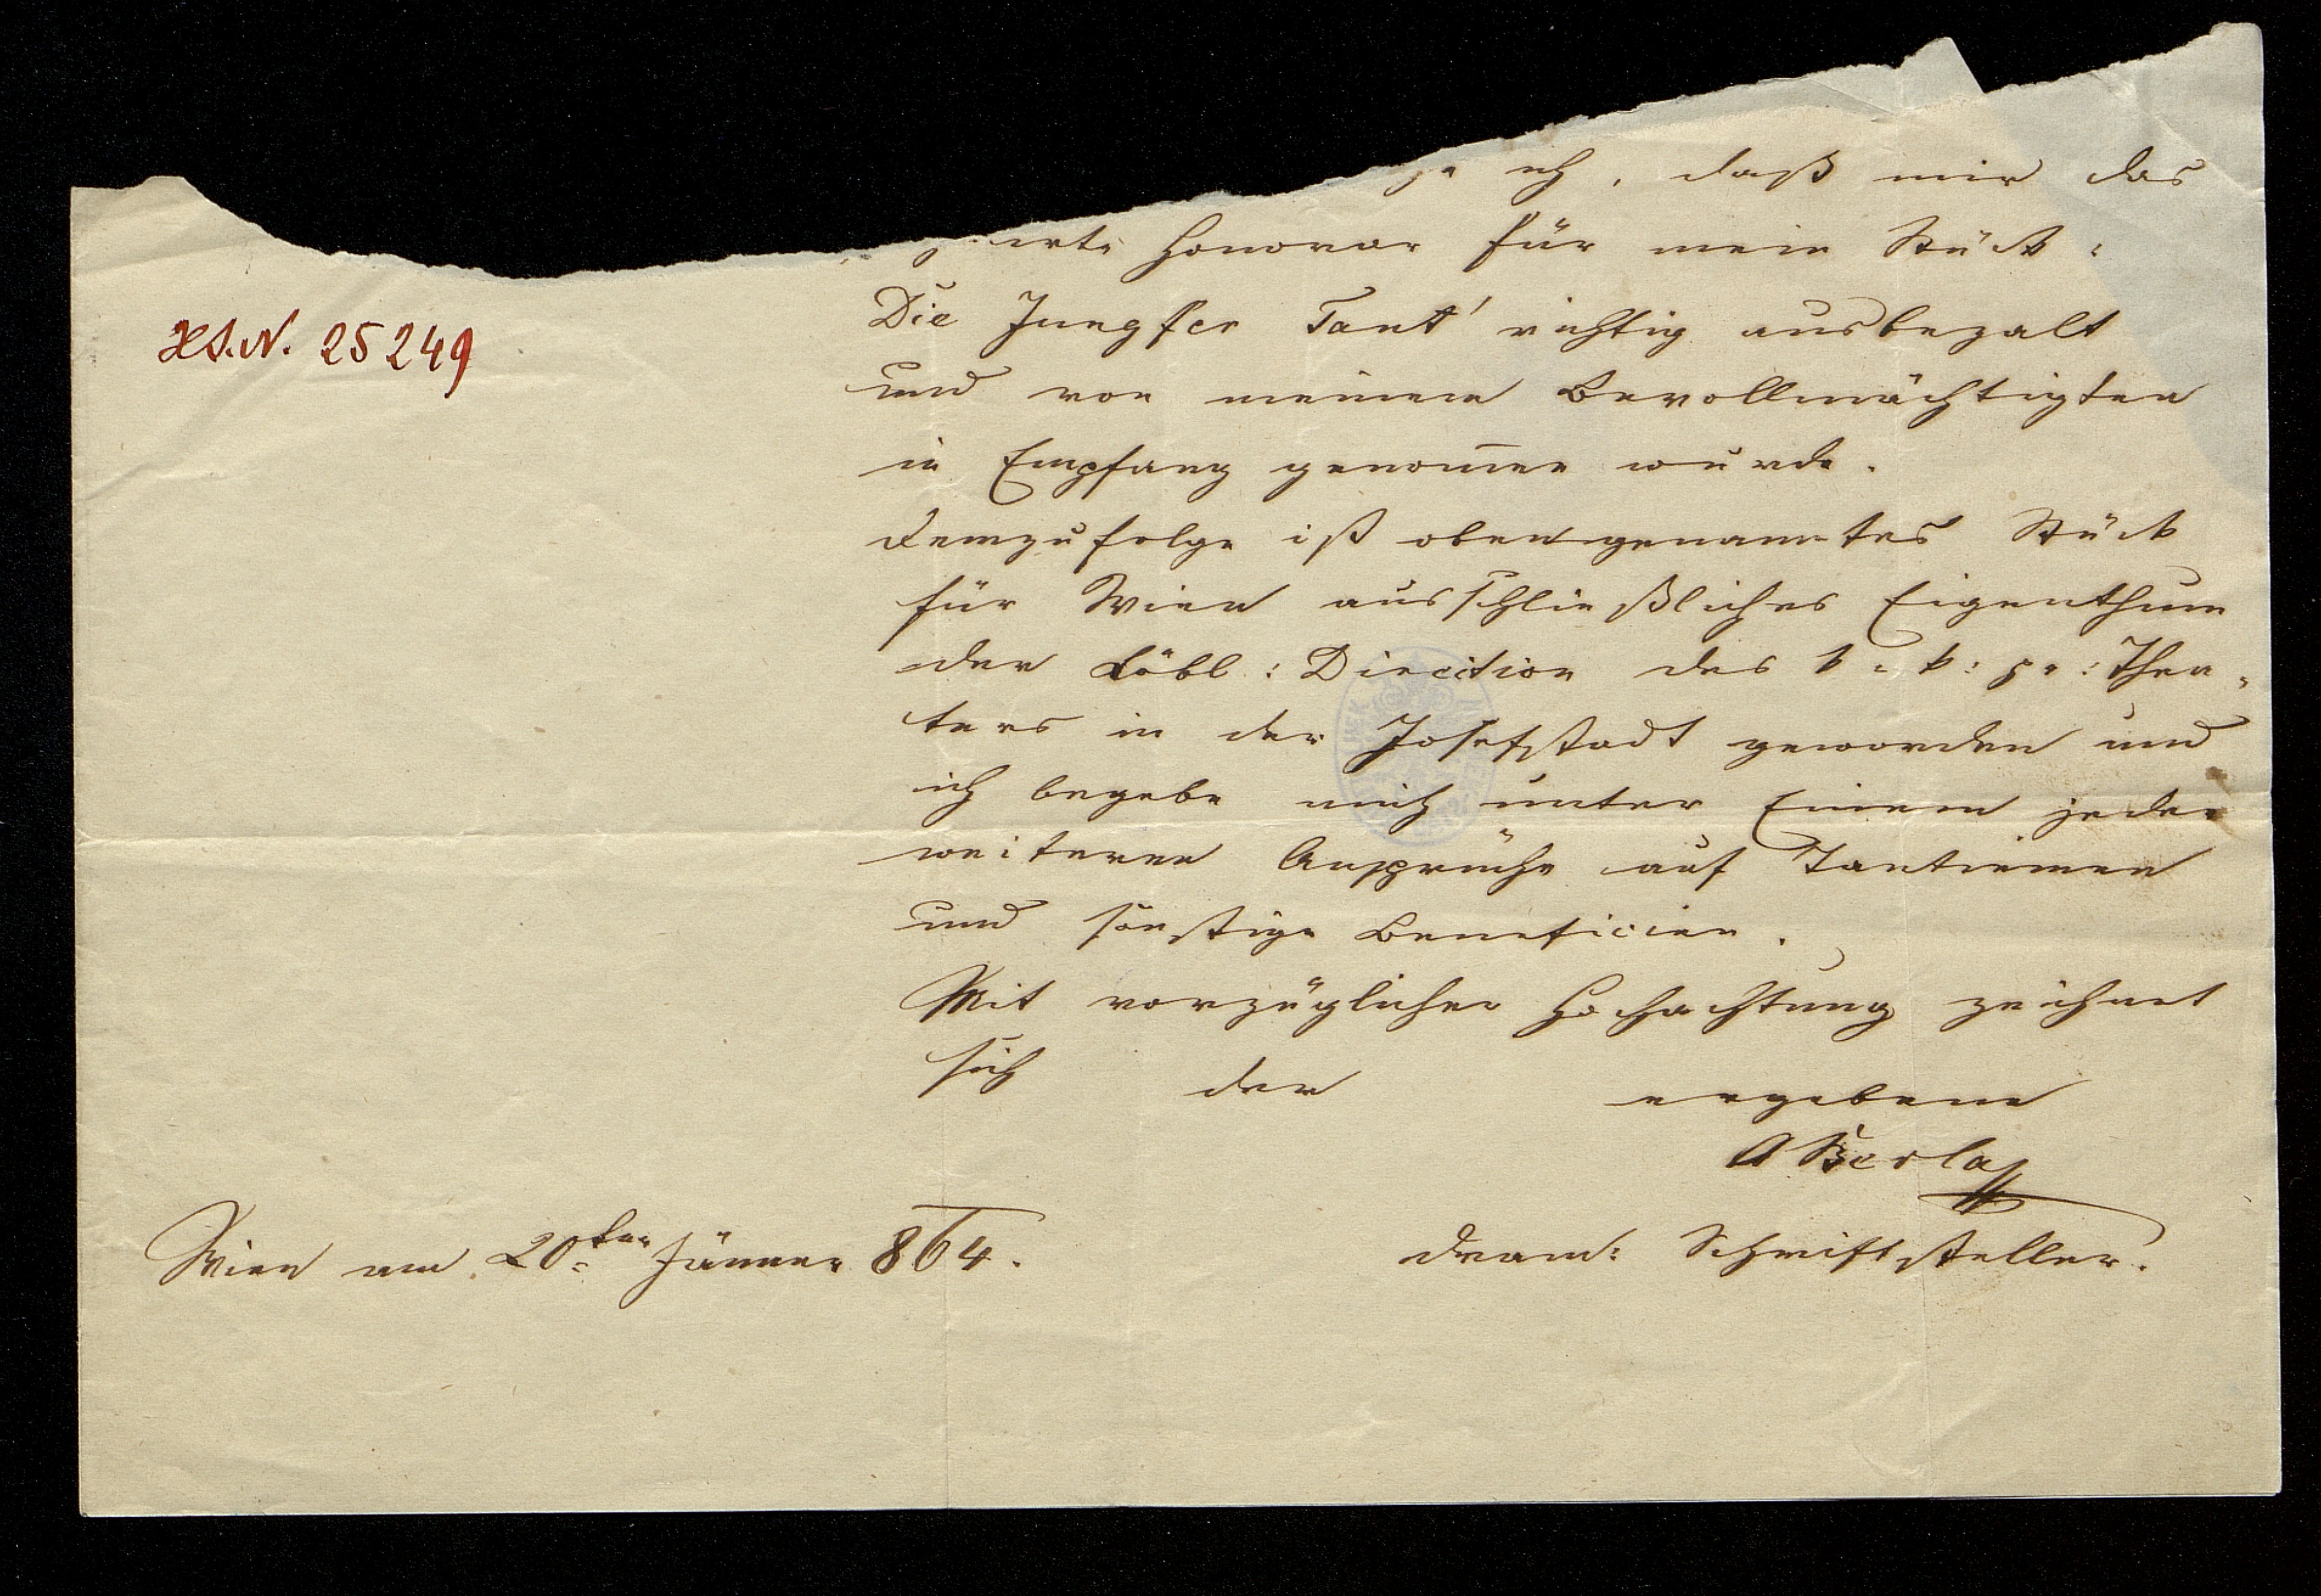 ich, daß mir das
Honorar für mein Stück:
H.I.N. 25249
Die Jungfer Tant' richtig ausbezalt
und von meinem Bevollmächtigten
in Empfang genom̅en wurde.
Demzufolge ist obengenanntes Stück
für Wien ausschließliches Eigenthum
der Löbl: Direction des k: k: pr: Thea-
ters in der Josefstadt geworden und
ich begebe mich unter Einem jeder
weiteren Ansprüche auf Tantiemen
und sonstige Beneficien.
Mit vorzüglicher Hochachtung zeichnet
sich der ergebene
A Berla
dram: Schriftsteller.
Wien am 20ten Jänner 864.